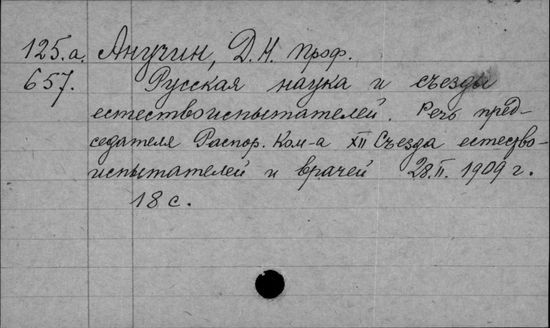 125.a. Анучин, Д.Н. проф.
657. Русская наука и съезды
естествоиспытателей. Речь пред-
седателя Распор. Ком-а XII Съезда естество-
испытателей и врачей 28.II. 1909 г.
18 с.